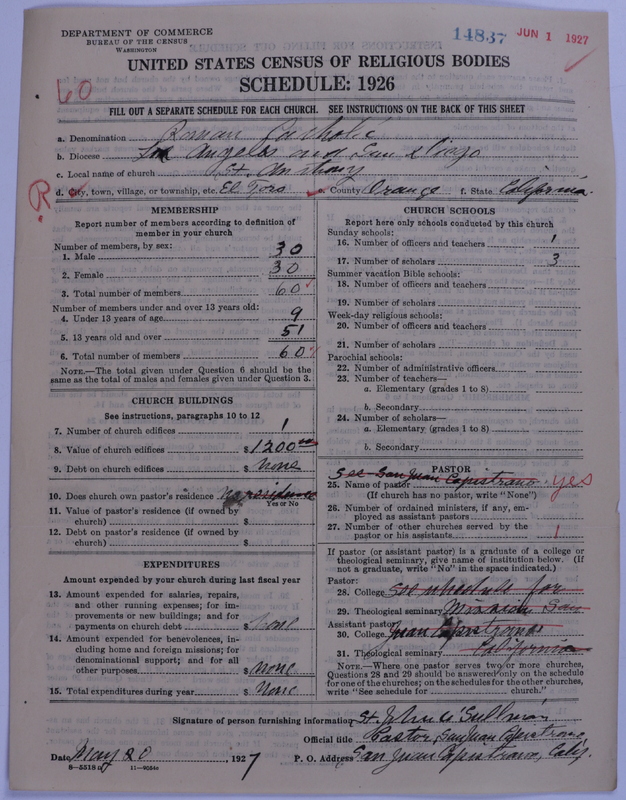 DEPARTMENT OF COMMERCE
BUREAU OF THE CENSUS
WASHINGTON
14837
JUN 1 1927
UNITED STATES CENSUS OF RELIGIOUS BODIES
SCHEDULE: 1926
60
FILL OUT A SEPARATE SCHEDULE FOR EACH CHURCH. SEE INSTRUCTIONS ON THE BACK OF THIS SHEET
a. Denomination Roman Catholic
b. Diocese Los Angeles and San Diego
c. Local name of church St. Anthony
R
d. City, town, village, or township, etc. El Toro e. County Orange f. State California.
MEMBERSHIP
Report number of members according to definition of
member in your church
Number of members, by sex:
1. Male 30
2. Female 30
3. Total number of members 60
Number of members under and over 13 years old:
4. Under 13 years of age 9
5. 13 years old and over 51
6. Total number of members 60
NOTE.—The total given under Question 6 should be the
same as the total of males and females given under Question 3.
CHURCH BUILDINGS
See instructions, paragraphs 10 to 12
7. Number of church edifices 1
8. Value of church edifices $1200
9. Debt on church edifices $ None
10. Does church own pastor's residence No residence
Yes or No
11. Value of pastor's residence (if owned by
church) $
12. Debt on pastor's residence (if owned by
church) $
EXPENDITURES
Amount expended by your church during last fiscal year
13. Amount expended for salaries, repairs,
and other running expenses; for im-
provements or new buildings; and for
payments on church debt $ None
14. Amount expended for benevolences, in-
cluding home and foreign missions; for
denominational support; and for all
other purposes $ None
15. Total expenditures during year $ None
CHURCH SCHOOLS
Report here only schools conducted by this church
Sunday schools:
16. Number of officers and teachers 1
17. Number of scholars 3
Summer vacation Bible schools:
18. Number of officers and teachers
19. Number of scholars
Week-day religious schools:
20. Number of officers and teachers
21. Number of scholars
Parochial schools:
22. Number of administrative officers
23. Number of teachers—
a. Elementary (grades 1 to 8)
b. Secondary
24. Number of scholars—
a. Elementary (grades 1 to 8)
b. Secondary
PASTOR
See San Juan Capistrano. yes
25. Name of pastor
(If church has no pastor, write "None")
26. Number of ordained ministers, if any, em-
ployed as assistant pastors
27. Number of other churches served by the
pastor or his assistants 1
If pastor (or assistant pastor) is a graduate of a college or
theological seminary, give name of institution below. (If
not a graduate, write "No" in the space indicated.)
Pastor:
28. College See schedule for
29. Theological seminary Mission San
Assistant pastor:
30. College Juan Capistrano
31. Theological seminary California
NOTE.—Where one pastor serves two or more churches,
Questions 28 and 29 should be answered only on the schedule
for one of the churches; on the schedules for the other churches,
write "See schedule for church."
Signature of person furnishing information St. John O'Sullivan
Official title Pastor, San Juan Capistrano
Date May 20, 1927 P. O. Address San Juan Capistrano, Calif.
8—5518 a 11—9084